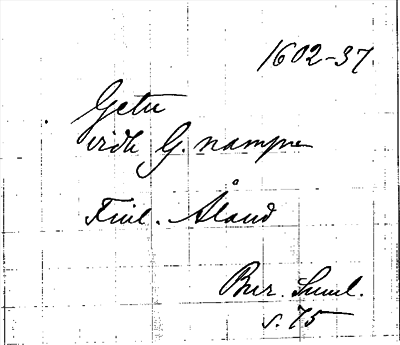 1602-37.
Geta
vide G. nampn
Finl. Åland
Bur. Suml.
s. 75